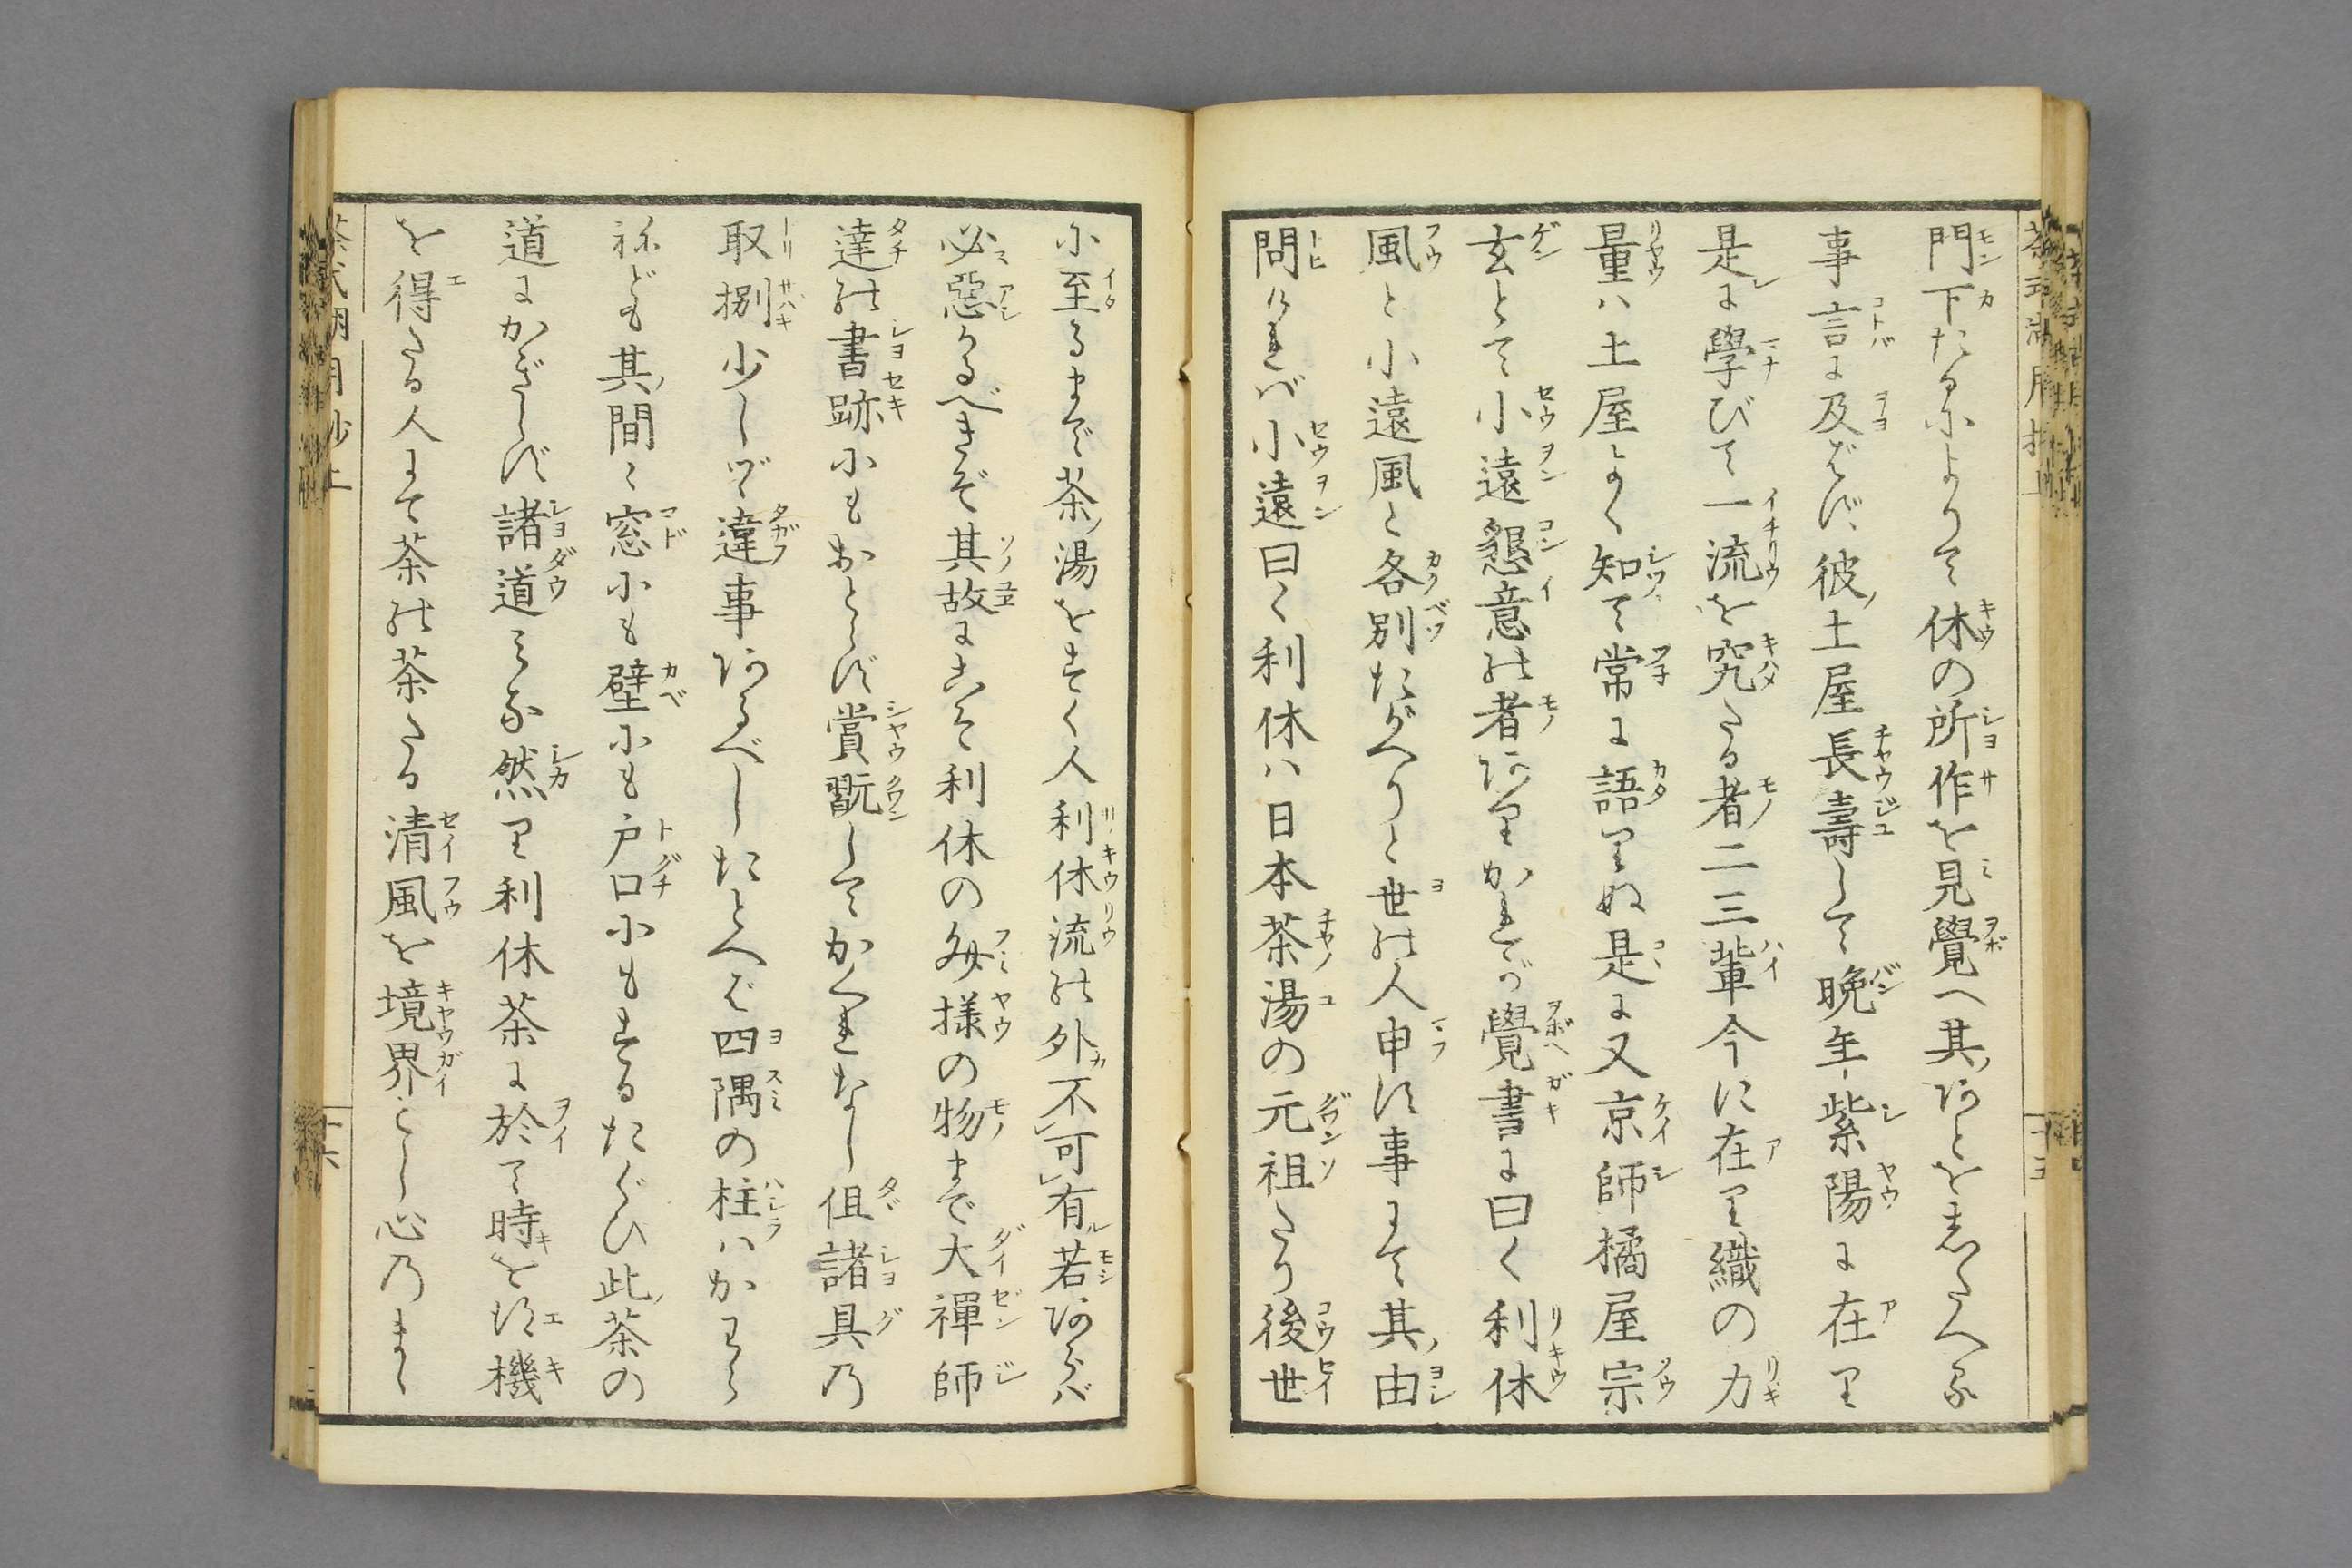 門下たるによりて休の所作を見覺へ其あとをしたへる
事言に及ばず彼土屋長壽して晩年紫陽に在り
是に學びて一流を究たる者二三輩今に在り織の力
量ハ土屋よく知て常に語りぬ是に又京師橘屋宗
玄とて小遠懇意の者ありかれが覺書に曰く利休
風と小遠風と各別たがへりと世の人申す事にて其由
問ければ小遠曰く利休ハ日本茶湯の元祖たり後世
に至るまで茶湯をすく人利休流の外不可有若あらバ
必惡かるべきぞ其故にこそ利休の毎様の物まで大禪師
達の書跡にもおとらず賞翫してかくれなし但諸具の
取捌少しづゝ違事あるべしたとへば四隅の柱ハかわら
ねども其間々窓にも壁にも戸口にもするたぐひ此茶の
道にかぎらず諸道みな然り利休茶に於て時を得機
を得たる人にて茶の茶たる清風を境界とし心のまゝ